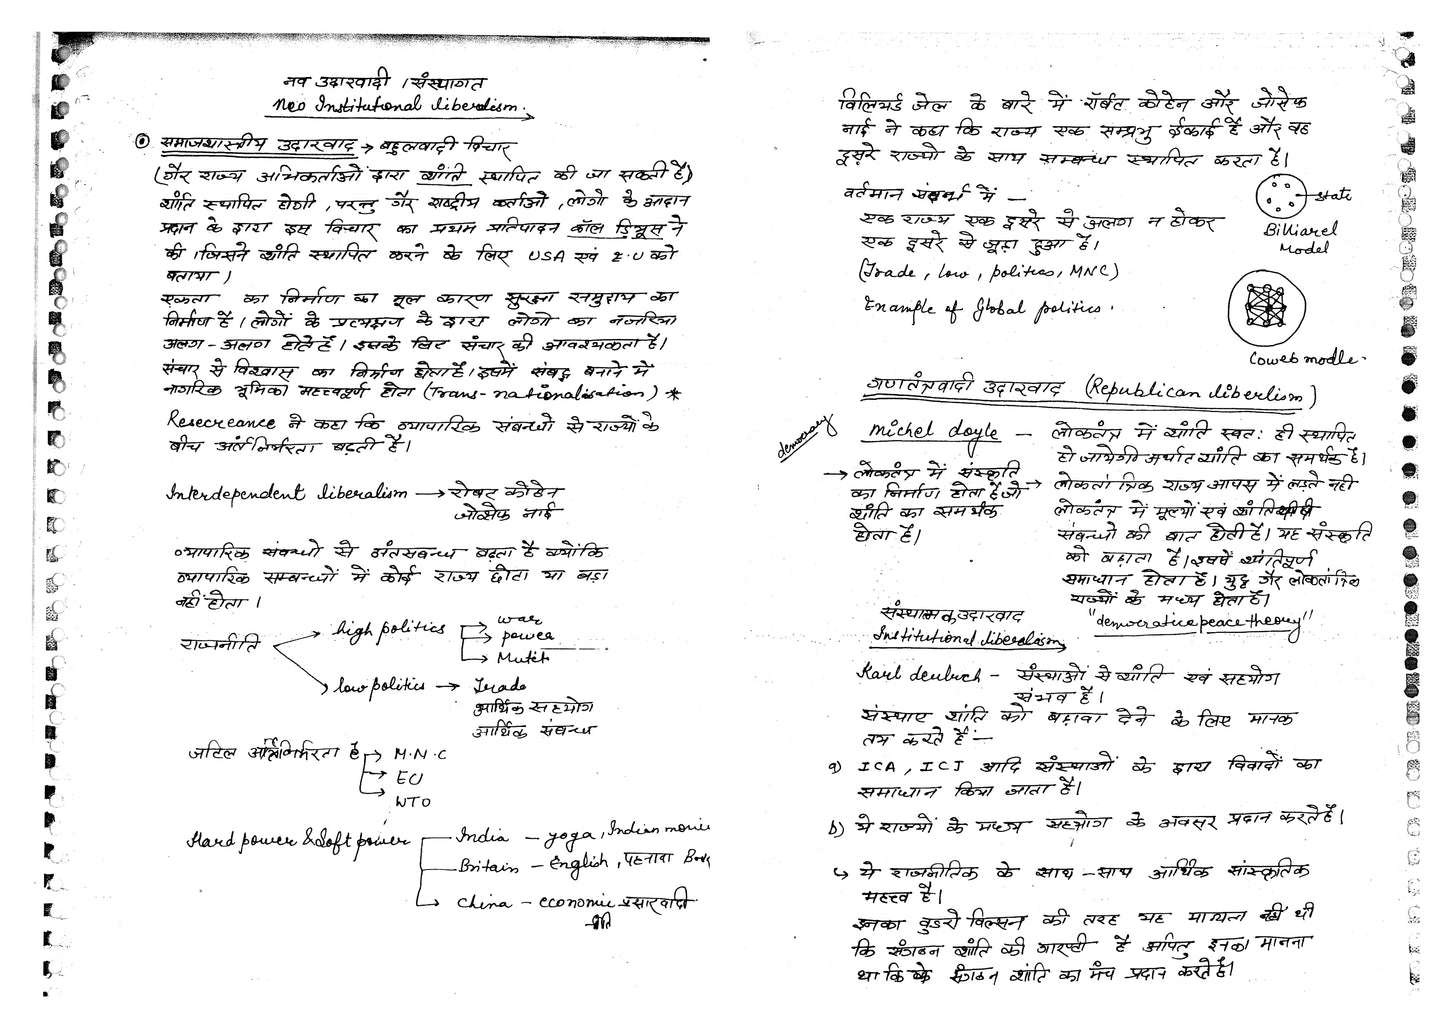 नव उदारवादी / संस्थागत
Neo Institutional liberalism.
समाजशास्त्रीय उदारवाद → बहुलवादी विचार
(गैर राज्य अभिकर्ताओं द्वारा शांति स्थापित की जा सकती है)
शांति स्थापित होगी, परन्तु गैर राष्ट्रीय कर्ताओ, लोगो के आदान
प्रदान के द्वारा इस विचार का प्रथम प्रतिपादन कॉल डियूस ने
की। जिसने शांति स्थापित करने के लिए USA एवं E.U को
बताया।
एकता का निर्माण का मूल कारण सुरक्षा समुदाय का
निर्माण है। लोगों के प्रत्यक्षण के द्वारा लोगो का नजरिया
अलग-अलग होते हैं। इसके लिए संचार की आवश्यकता है।
संचार से विश्वास का निर्माण होता है। इसमें संबद्ध बनाने मे
नागरिक भूमिका महत्त्वपूर्ण होता (Trans-nationalisation) *
Resecreance ने कहा कि व्यापारिक संबन्धो से राज्यों के
बीच अंर्तनिर्भरता बढ़ती है।
Interdependent liberalism → रोबर्ट कोहेन
जोसेफ नाई
व्यापारिक संबन्धो से अंतसबन्ध बढ़ता है क्योंकि
व्यापारिक सम्बन्धों में कोई राज्य छोटा या बड़ा
नहीं होता।
राजनीति
high politics → war
→ power
→
low politics → Trade
आर्थिक सहयोग
आर्थिक संबन्ध
जटिल अंर्तनिर्भरता है → M.N.C
→ EU
→ WTO
Hard power & Soft power
India - yoga, Indian movie
Britain - English, पहनावा
China - economic प्रसारवादी
विलियर्ड जेल के बारे में रॉर्बट कोहेन और जोसेफ
नाई ने कहा कि राज्य एक सम्प्रभु ईकाई है और वह
दूसरे राज्यो के साथ सम्बन्ध स्थापित करता है।
state
Billiarel
Model
वर्तमान संदर्भ में -
एक राज्य एक दूसरे से अलग न होकर
एक दूसरे से जुड़ा हुआ है।
(Trade, low, politics, MNC)
Example of Global politics.
Coweb modle.
गणतंत्रवादी उदारवाद (Republican liberlism)
democracy
Michel doyle - लोकतंत्र में शांति स्वतः ही स्थापित
हो जायेगी अर्थात शांति का समर्थक है।
→ लोकतंत्र में संस्कृति
का निर्माण होता है जो
शांति का समर्थक
होता है।
→ लोकतांत्रिक राज्य आपस में लड़ते नही
लोकतंत्र में मूल्यों एवं शांति
संबन्धो की बात होती है। यह संस्कृति
को बढ़ाता है। इसमें शांतिपूर्ण
समाधान होता है। युद्ध गैर लोकतांत्रिक
राज्यों के मध्य होता है।
"democratice peace theory"
संस्थात्मक उदारवाद
Institutional liberalism
Karl deutuch - संस्थाओं से शांति एवं सहयोग
संभव है।
संस्थाए शांति को बढ़ावा देने के लिए मानक
तय करते हैं :-
a) ICA, ICJ आदि संस्थाओं के द्वारा विवादों का
समाधान किया जाता है।
b) ये राज्यों के मध्य सहयोग के अवसर प्रदान करते हैं।
↳ ये राजनीतिक के साथ-साथ आर्थिक सांस्कृतिक
महत्त्व है।
इनका वुडरो विल्सन की तरह यह मान्यता नहीं थी
कि संगठन शांति की गारण्टी है अपितु इनका मानना
था कि संगठन शांति का मंच प्रदान करते हैं।